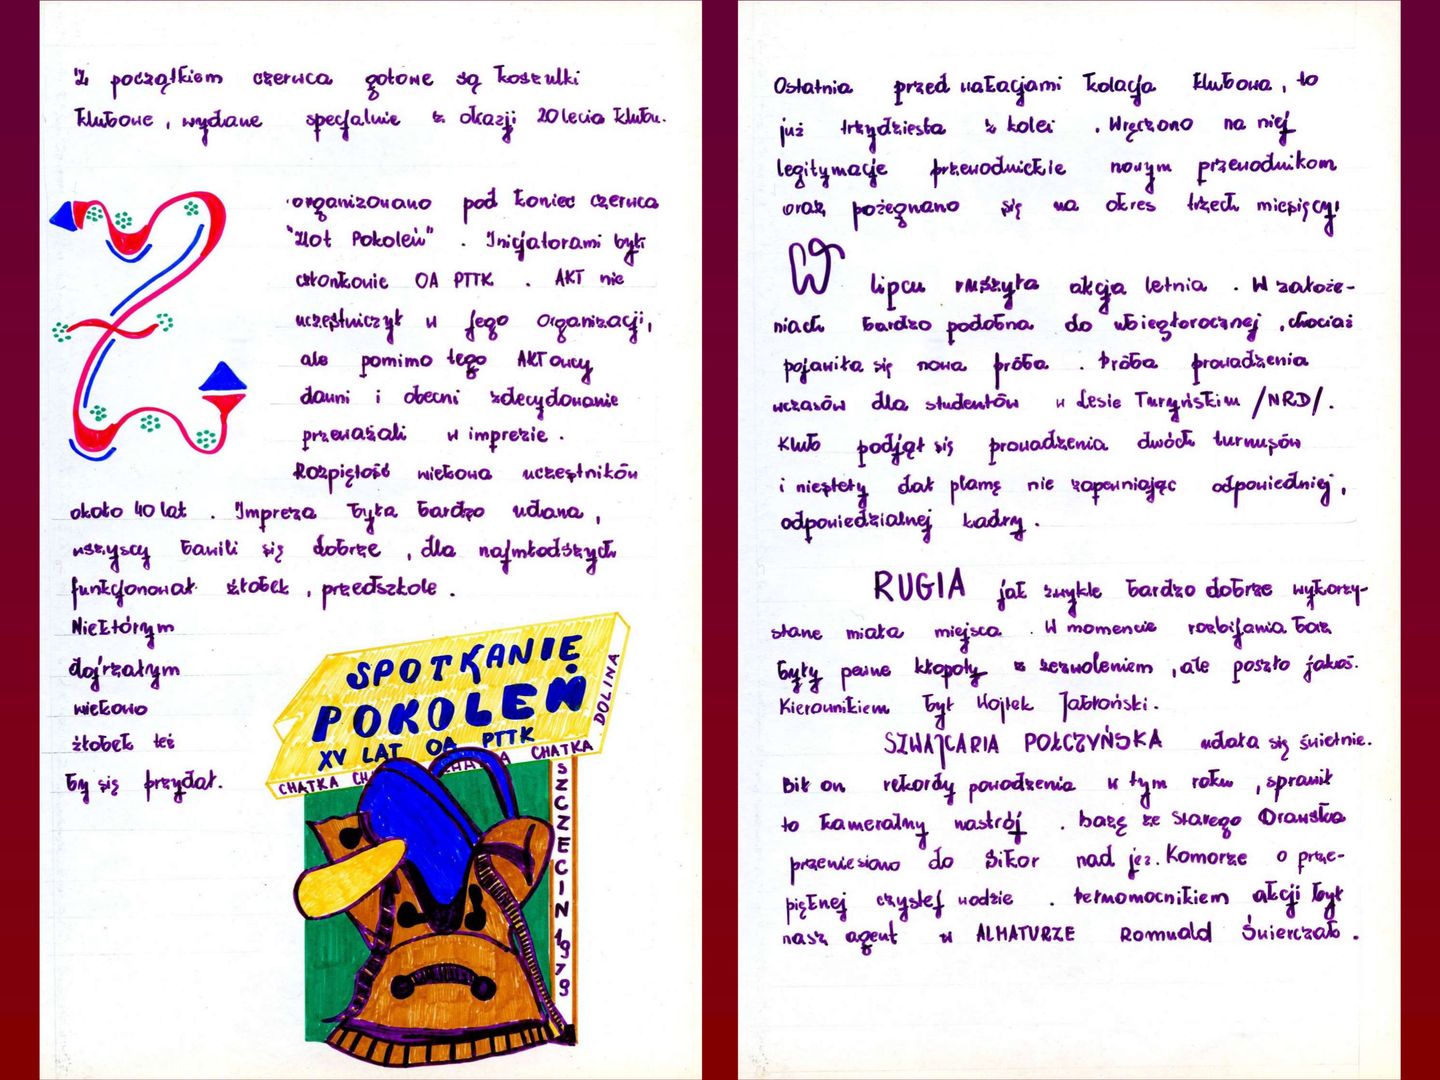 Z początkiem czerwca gotowe są koszulki
klubowe, wydane specjalnie z okazji 20 lecia klubu.
Z
organizowano pod koniec czerwca
"Zlot Pokoleń". Inicjatorami byli
członkowie OA PTTK. AKT nie
uczęstniczył w jego organizacji,
ale pomimo tego AKTowcy
dawni i obecni zdecydowanie
przeważali w imprezie.
Rozpiętość wiekowa uczęstników
około 40 lat. Impreza była bardzo udana,
wszyscy bawili się dobrze, dla najmłodszych
funkcjonował żłobek, przedszkole.
Niektórym
dojrzałym
wiekowo
żłobek też
by się przydał.
SPOTKANIE
POKOLEŃ
XV LAT OA PTTK
CHATKA CHATKA CHATKA
DOLINA
SZCZECIN 1979
Ostatnia przed wakacjami kolacja klubowa, to
już trzydziesta z kolei. Wręczono na niej
legitymacje przewodnickie nowym przewodnikom
oraz pożegnano się na okres trzech miesięcy.
W lipcu ruszyła akcja letnia. W założe-
niach bardzo podobna do ubiegłorocznej, chociaż
pojawiła się nowa próba. Próba prowadzenia
wczasów dla studentów w Lesie Turyńskim /NRD/.
Klub podjął się prowadzenia dwóch turnusów
i niestety dał plamę nie zapewniając odpowiedniej,
odpowiedzialnej kadry.
RUGIA jak zwykle bardzo dobrze wykorzy-
stane miała miejsca. W momencie rozbijania baz
były pewne kłopoty z zezwoleniem, ale poszło jakoś.
Kierownikiem był Wojtek Jabłoński.
SZWAJCARIA POŁCZYŃSKA udała się świetnie.
Bił on rekordy powodzenia w tym roku, sprawił
to kameralny nastrój. bazę ze Starego Drawska
przeniesiono do Sikor nad jez. Komorze o prze-
pięknej czystej wodzie. Pełnomocnikiem akcji był
nasz agent w ALMATURZE Romuald Świerczak.